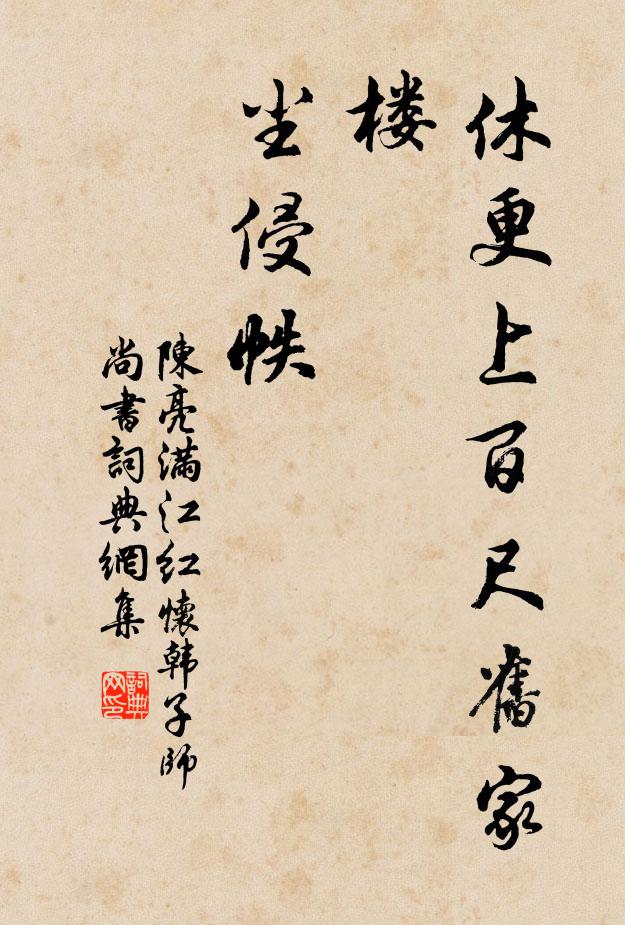 休更上百尺舊家
楼
尘侵帙
陳亮满江红懷韩子師
尚書詞典網集
詞典
网印